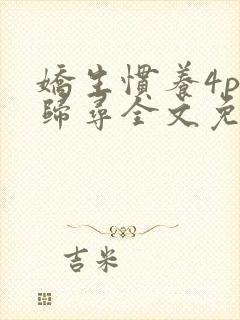 嬌生慣養4p
歸尋全文免
吉米